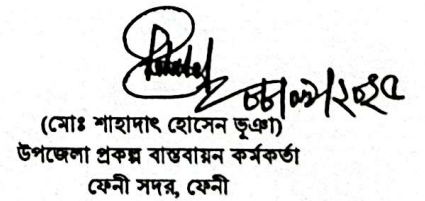 (মোঃ শাহাদাৎ হোসেন ভূঞা)
উপজেলা প্রকল্প বাস্তবায়ন কর্মকর্তা
ফেনী সদর, ফেনী